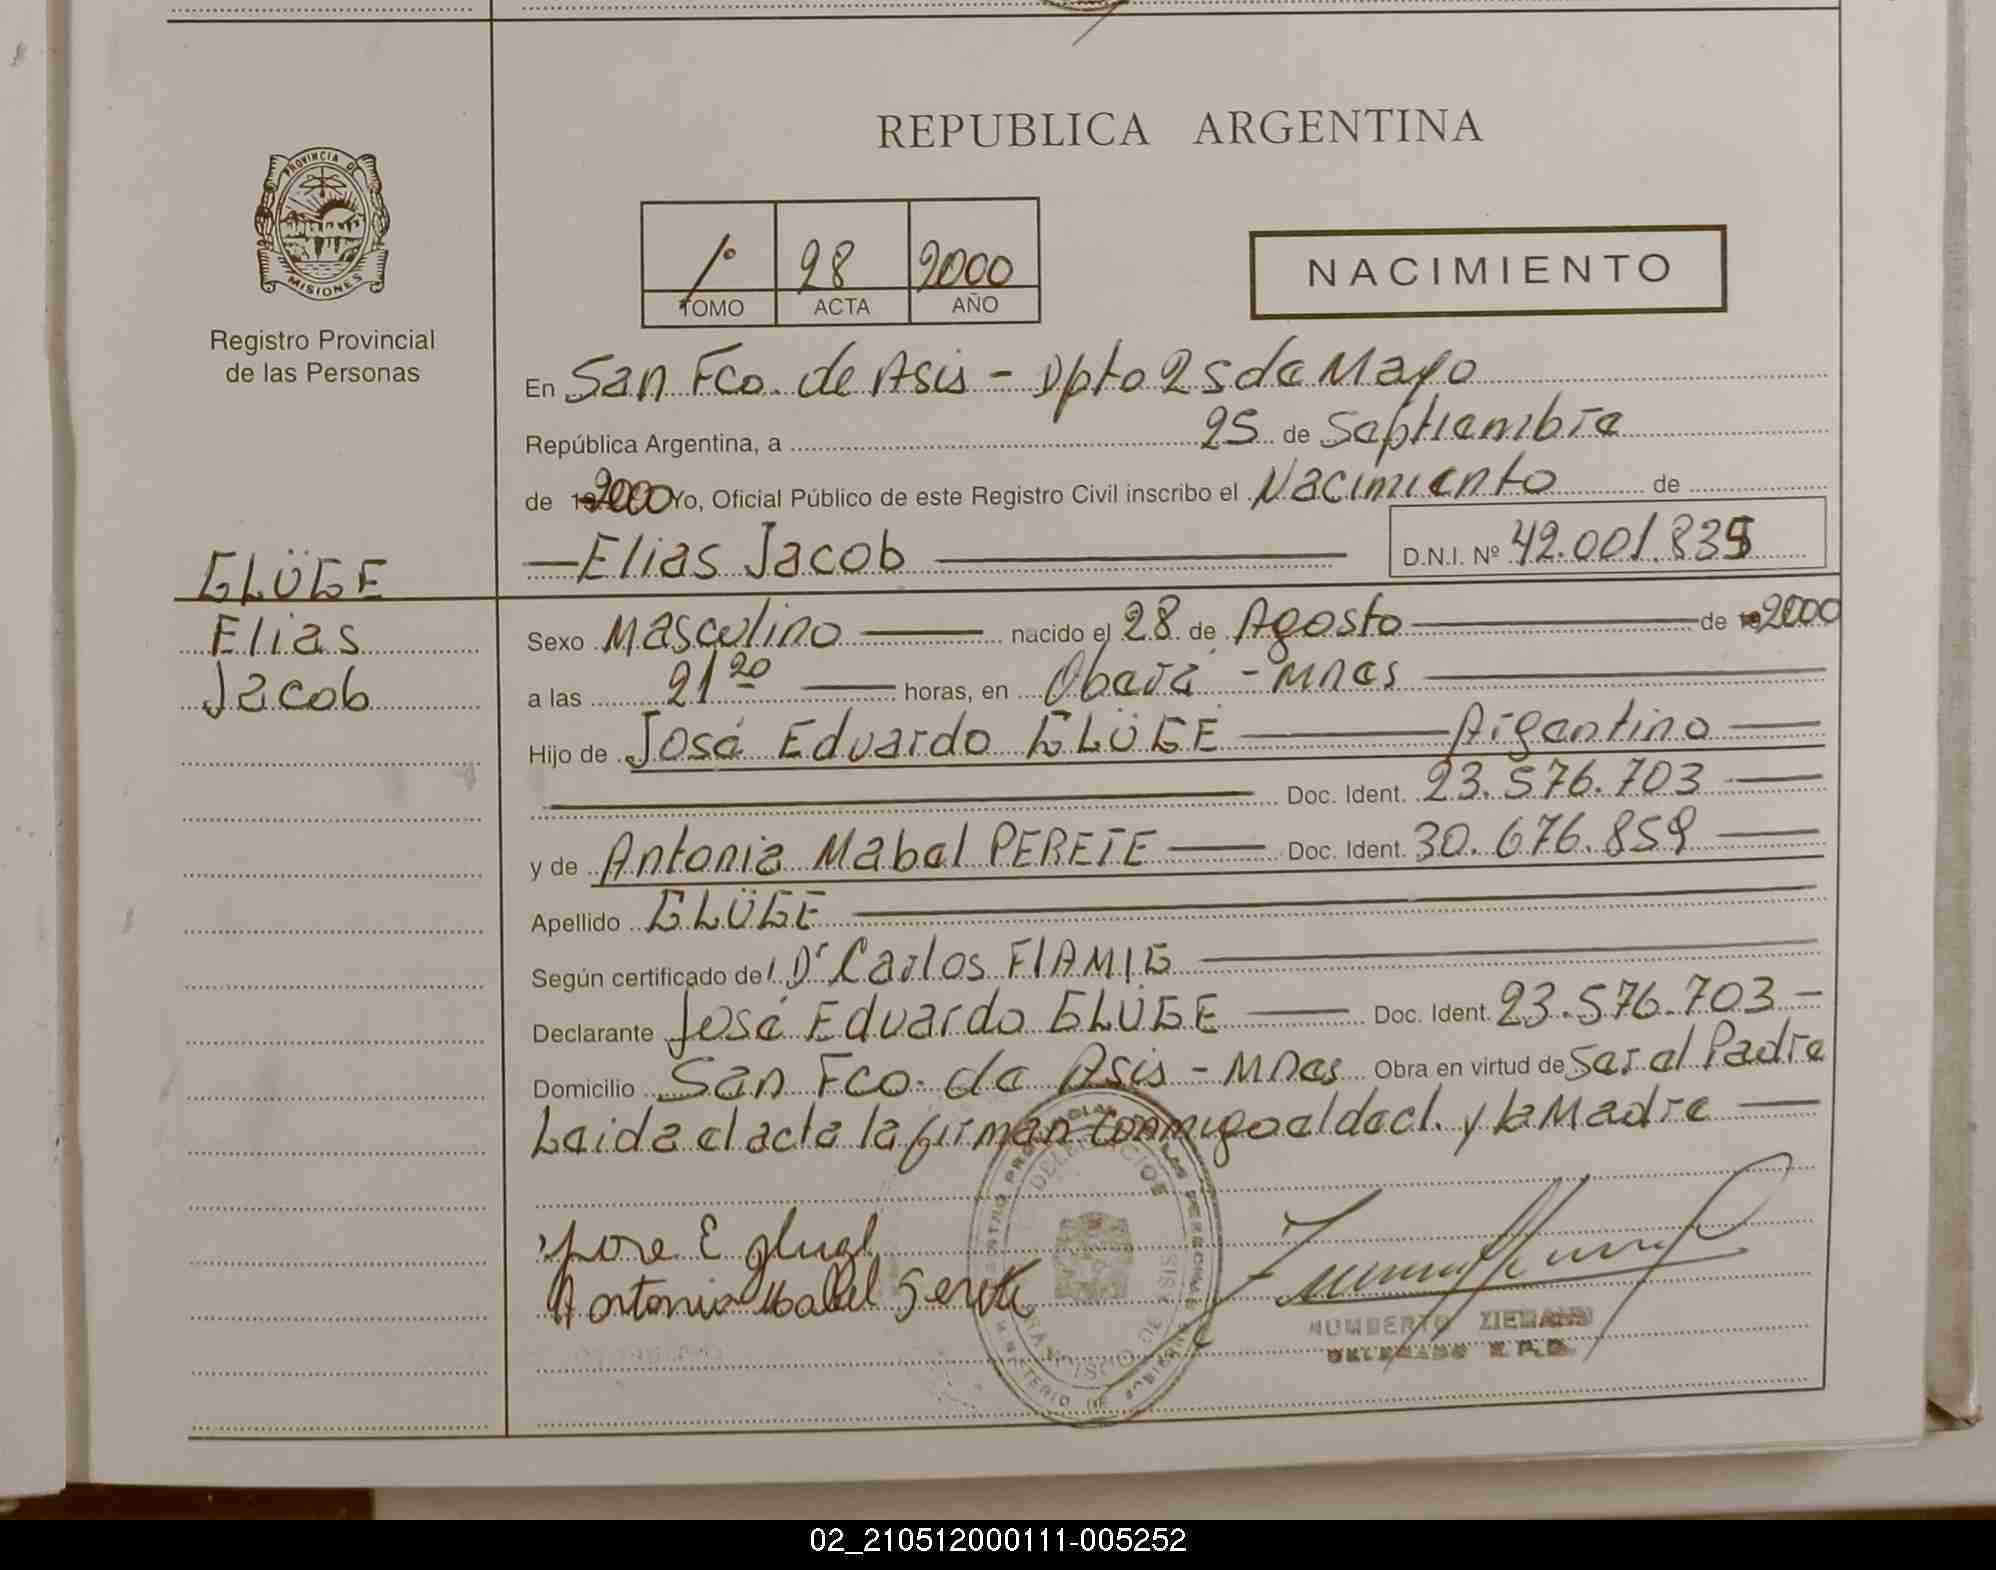 REPUBLICA ARGENTINA
PROVINCIA DE
MISIONES
Registro Provincial
de las Personas
1° 28 2000
TOMO ACTA AÑO
NACIMIENTO
En San Fco. de Asis - Dpto 25 de Mayo
República Argentina, a 25 de Septiembre
de 192000 Yo, Oficial Público de este Registro Civil inscribo el Nacimiento de
Elias Jacob D.N.I. Nº 42.001.835
GLÜGE
Elias
Jacob
Sexo Masculino nacido el 28 de Agosto de 192000
a las 21 20 horas, en Oberá - Mnes
Hijo de José Eduardo GLÜGE Argentino
Doc. Ident. 23.576.703
y de Antonia Mabel PEREIE Doc. Ident. 30.676.859
Apellido GLÜGE
Según certificado del Dr Carlos FIAMIG
Declarante José Eduardo GLÜGE Doc. Ident. 23.576.703
Domicilio San Fco. de Asis - Mnes Obra en virtud de Ser el Padre
Leida el acta la firman conmigo el decl. y la Madre
Jose E gluge
Antonia Mabel
HUMBERTO ZIEMANN
DELEGADO R.P.P.
02_210512000111-005252